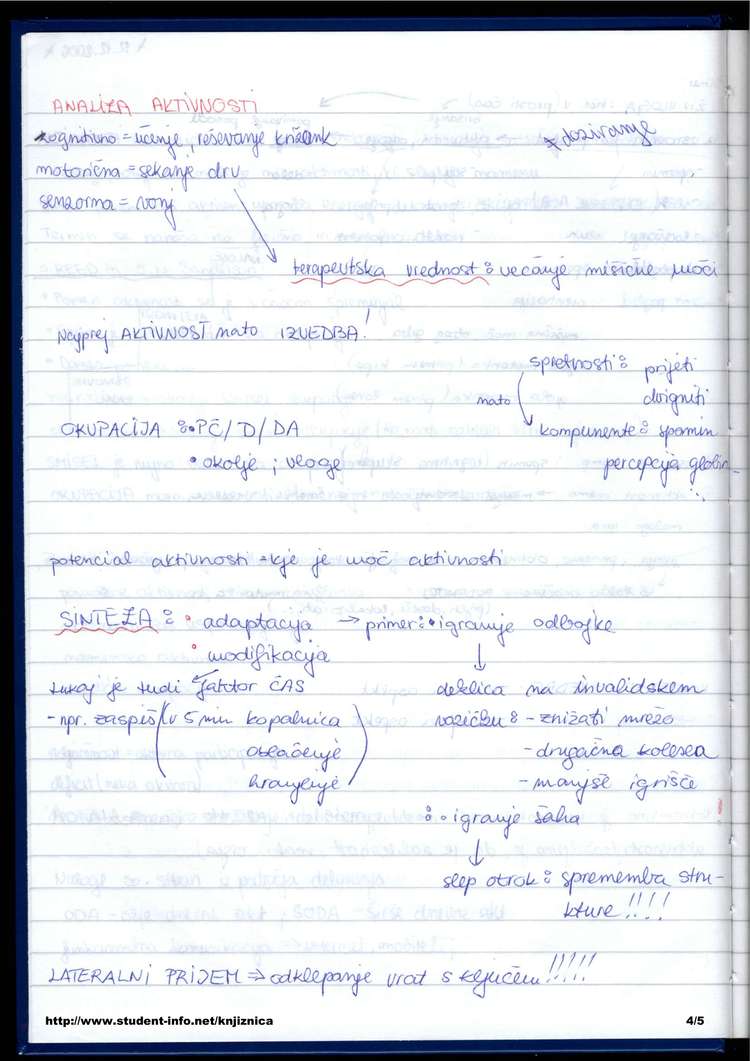 ANALIZA AKTIVNOSTI
kognitivno = učenje, reševanje križank
* doziranje
motorična = sekanje drv
senzorna = vonj
terapevtska vrednost : večanje mišične moči
Najprej AKTIVNOST nato IZVEDBA!
spretnosti : prijeti
dvigniti
nato
OKUPACIJA : • PČ/D/DA
komponente : spomin
• okolje ; vloge
percepcija globin...
potencial aktivnosti = kje je moč aktivnosti
SINTEZA : • adaptacija → primer : • igranje odbojke
• modifikacija
tukaj je tudi faktor ČAS
deklica na invalidskem
- npr. zaspiš (v 5 min kopalnica
vozičku : - znižati mrežo
oblačenje
- drugačna kolesa
hranjenje)
- manjše igrišče
: • igranje šaha
slep otrok : sprememba stru-
kture !!!!
LATERALNI PRIJEM ⇒ odklepanje vrat s ključem !!!!!
http://www.student-info.net/knjiznica
4/5